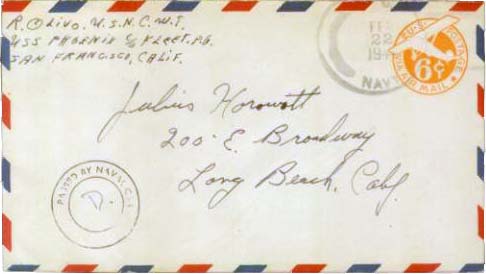 R. Olivo. U.S.N.C.W.T.
USS PHOENIX C/o FLEET. P.O.
SAN FRANCISCO, CALIF.
FEB
22
19
NAVY
U.S. POSTAGE
VIA AIR MAIL
6¢
Julius Horowitt
200 E. Broadway
Long Beach, Calif
PASSED BY NAVAL